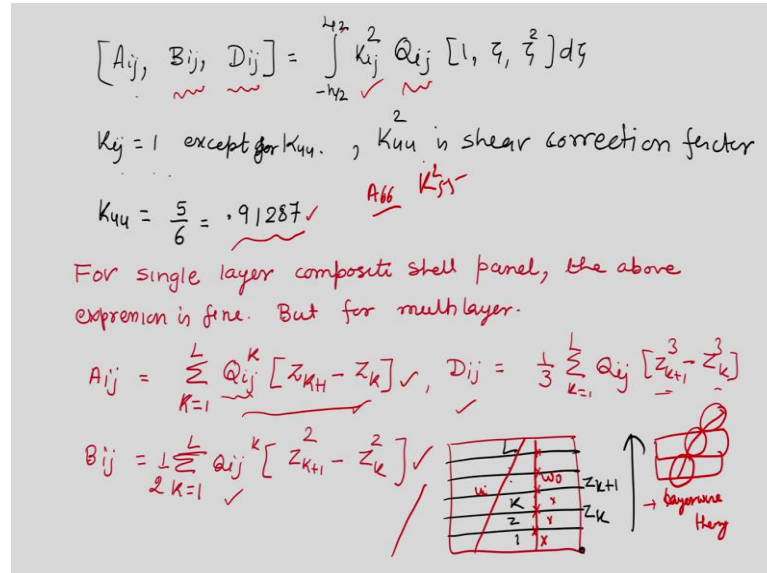 [Aij, Bij, Dij] = ∫_{-h/2}^{h/2} K²ij Qij [1, ζ, ζ²] dζ
Kij = 1 except for K44. , K²44 is shear correction factor
A66 K²55
K44 = 5/6 = .91287
For single layer composite shell panel, the above
expression is fine. But for multilayer.
Aij = Σ_{K=1}^{L} Qij^K [Z_{K+1} - Z_K] , Dij = 1/3 Σ_{K=1}^{L} Qij [Z³_{K+1} - Z³_K]
Bij = 1/2 Σ_{K=1}^{L} Qij^K [Z²_{K+1} - Z²_K]
L
w0
K
Z_{K+1}
2
Z_K
1
→ Layerwise
theory